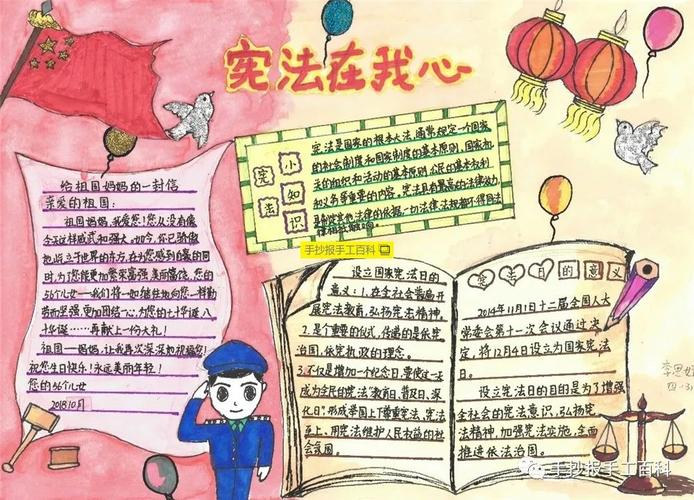 宪法在我心
给祖国妈妈的一封信
亲爱的祖国:
祖国妈妈,我爱您!您从没有像
今天这样威武和强大。如今,您已骄傲
地屹立于世界的东方,在为您感到自豪的同
时,为了您能更加繁荣富强、美丽富饶,您的
56个儿女——我们将一如继往地向您一样勤
劳而坚强,更加团结一心,为您的七十华诞、八
十华诞……再献上一份大礼!
祖国——妈妈,让我再次深深和祝福您!
祝您生日快乐!永远美丽年轻!
您的56个儿女
2018.10月
宪法小知识
宪法是国家的根本大法,通常规定一个国家
的社会制度和国家制度的基本原则,国家机
关的组织和活动的基本原则,公民的基本权利
和义务等重要的内容。宪法具有最高的法律效力
手抄报手工百科
设立国家宪法日的
意义:1.在全社会普遍开
展宪法教育,弘扬宪法精神。
2.是个重要的仪式,传递的是依宪
治国、依宪执政的理念。
3.不仅是增加一个纪念日,要使这一天
成为全民的宪法“教育日、普及日、深
化日”,形成举国上下尊重宪法、宪法
至上、用宪法维护人民权益的社
会氛围。
的意义
2014年11月1日十二届全国人大
常委会第十一次会议通过决
定,将12月4日设立为国家宪法
日。
设立宪法日的目的是为了增强
全社会的宪法意识,弘扬宪
法精神,加强宪法实施,全面
推进依法治国。
手抄报手工百科